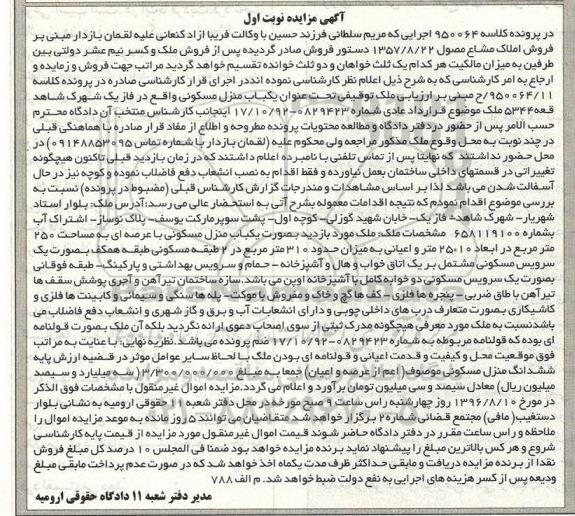 آگهی مزایده نوبت اول
در پرونده کلاسه ۹۵۰۰۶۴ اجرایی که مریم سلطانی فرزند حسین با وکالت فریبا ازاد کنعانی علیه لقمان بازدار مبنی بر
فروش املاک مشاع مصول ۱۳۵۷/۸/۲۲ دستور فروش صادر گردیده پس از فروش ملک و کسر نیم عشر دولتی بین
طرفین به میزان مالکیت هر کدام یک ثلث خواهان و دو ثلث خوانده تقسیم خواهد گردید مراتب جهت فروش و مزایده و
ارجاع به امر کارشناسی که به شرح ذیل اعلام نظر کارشناسی نموده اند در اجرای قرار کارشناسی صادره در پرونده کلاسه
۹۵۰۰۶۴/۱۱/ح مبنی بر ارزیابی ملک توقیفی تحت عنوان یکباب منزل مسکونی واقع در فاز یک شهرک شاهد
قطعه ۵۳۴۴ ملک موضوع قرارداد عادی شماره ۰۸۲۹۴۲۳-۱۷/۱۰/۹۲ اینجانب کارشناس منتخب آن دادگاه محترم
حسب الامر پس از حضور در دفتر دادگاه و مطالعه محتویات پرونده مطروحه و اطلاع از مفاد قرار صادره با هماهنگی قبلی
در چند نوبت به محل وقوع ملک مذکور مراجعه ولی محکوم علیه (لقمان بازدار با شماره تماس ۰۹۱۴۸۸۵۳۰۹۵) در
محل حضور نداشتند که نهایتا پس از تماس تلفنی با نامبرده اعلام داشتند که در زمان بازدید قبلی تاکنون هیچگونه
تغییراتی در قسمتهای داخلی ساختمان بعمل نیاورده و فقط اقدام به نصب انشعاب دفع فاضلاب نموده و کوچه نیز در حال
آسفالت شدن می باشد لذا بر اساس مشاهدات و مندرجات گزارش کارشناس قبلی (مضبوط در پرونده) نسبت به
بررسی موضوع اقدام نمودم که نتیجه اقدامات معموله بشرح آتی به استحضار عالی می رسد: آدرس ملک: بلوار استاد
شهریار- شهرک شاهد- فاز یک- خابان شهید گوزلی- کوچه اول- پشت سوپرمارکت یوسف- پلاک نوساز- اشتراک آب
بشماره ۶۵۸۱۱۹۱۰۰ مشخصات ملک: ملک مورد بازدید بصورت یکباب منزل مسکونی با عرصه ای به مساحت ۲۵۰
متر مربع در ابعاد ۱۰*۲۵ متر و اعیانی به میزان حدود ۳۱۰ متر مربع در ۲ طبقه مسکونی طبقه همکف بصورت یک
سرویس مسکونی مشتمل بر یک اتاق خواب و هال و آشپزخانه – حمام و سرویس بهداشتی و پارکینگ – طبقه فوقانی
بصورت یک سرویس مسکونی دو خوابه کامل با آشپزخانه اوپن می باشد. سازه ساختمان تیر آهن و آجری پوشش سقف ها
تیر آهن با طاق ضربی – پنجره ها فلزی – کف ها گچ و خاک و مفروش با موکت – پله ها سنگی و سیمانی و کابینت ها فلزی و
کاشیکاری بصورت متعارف درب های داخلی چوبی و دارای انشعابات آب و برق و گاز شهری و انشعاب دفع فاضلاب می
باشد نسبت به ملک مورد معرفی هیچگونه مدرک ثبتی از سوی اصحاب دعوی ارائه نگردید بلکه آن ملک بصورت قولنامه
ای بوده که قولنامه مربوطه به شماره ۰۸۲۹۴۲۳-۱۷/۱۰/۹۲ ضم پرونده می باشد. نظریه نهایی: با عنایت به مراتب
فوق موقعیت محل و کیفیت و قدمت اعیانی و قولنامه ای بودن ملک با لحاظ سایر عوامل موثر در قضیه ارزش پایه
ششدانگ منزل مسکونی موصوف (اعم از عرصه و اعیان) جمعا به مبلغ ۳/۳۰۰/۰۰۰/۰۰۰ (سه میلیارد و سیصد
میلیون ریال) معادل سیصد و سی میلیون تومان برآورد و اعلام می گردد. مزایده اموال غیرمنقول با مشخصات فوق الذکر
در مورخ ۱۳۹۶/۸/۱۰ روز چهارشنبه راس ساعت ۹ صبح الی در محل دفتر شعبه ۱۱ حقوقی ارومیه به نشانی بلوار
دستغیب (مافی) مجتمع قضائی شماره ۲ برگزار خواهد شد. متقاضیان می توانند ۵ روز مانده به موعد مزایده اموال را
ملاحظه و راس ساعت مقرر در دفتر دادگاه حاضر شوند قیمت اموال غیرمنقول مورد مزایده از قیمت پایه کارشناسی
شروع و هر کس بالاترین مبلغ را پیشنهاد نماید برنده مزایده خواهد بود ضمنا فی المجلس ۱۰ درصد کل مبلغ فروش
نقدا از برنده مزایده دریافت و مابقی حداکثر ظرف مدت یکماه اخذ خواهد شد که در صورت عدم پرداخت مابقی مبلغ
ودیعه پس از کسر هزینه های اجرایی به نفع دولت ضبط خواهد شد. م الف ۷۸۸
مدیر دفتر شعبه ۱۱ دادگاه حقوقی ارومیه